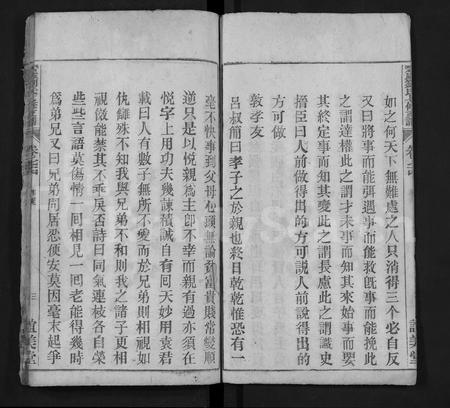 如之何天下無難處之人只消得三个必自反
又曰將事而能弭遇事而能救旣事而能挽此
之謂達權此之謂才未事而知其來始事而要
其終定事而知其變此之謂長慮此之謂識史
搢臣曰人前做得出的方可說人前說得出的
方可做
敦孝友
呂叔簡曰孝子之於親也終日乾乾惟恐有一
毫不快事到父母心頭無論貧富貴賤常變順
逆只是以悅親爲主卽不幸而親有過亦須在
悅字上用功夫幾諫積誠自有囘天妙用袁君
載曰人有數子無所不愛而於兄弟則相視如
仇讎殊不知我與兄弟不和則我之諸子更相
視傚能禁其不乖戾否詩曰同氣連枝各自榮
些些言語莫傷情一囘相見一囘老能得幾時
爲弟兄又曰兄弟同居忍便安莫因毫末起爭
三
誼美堂